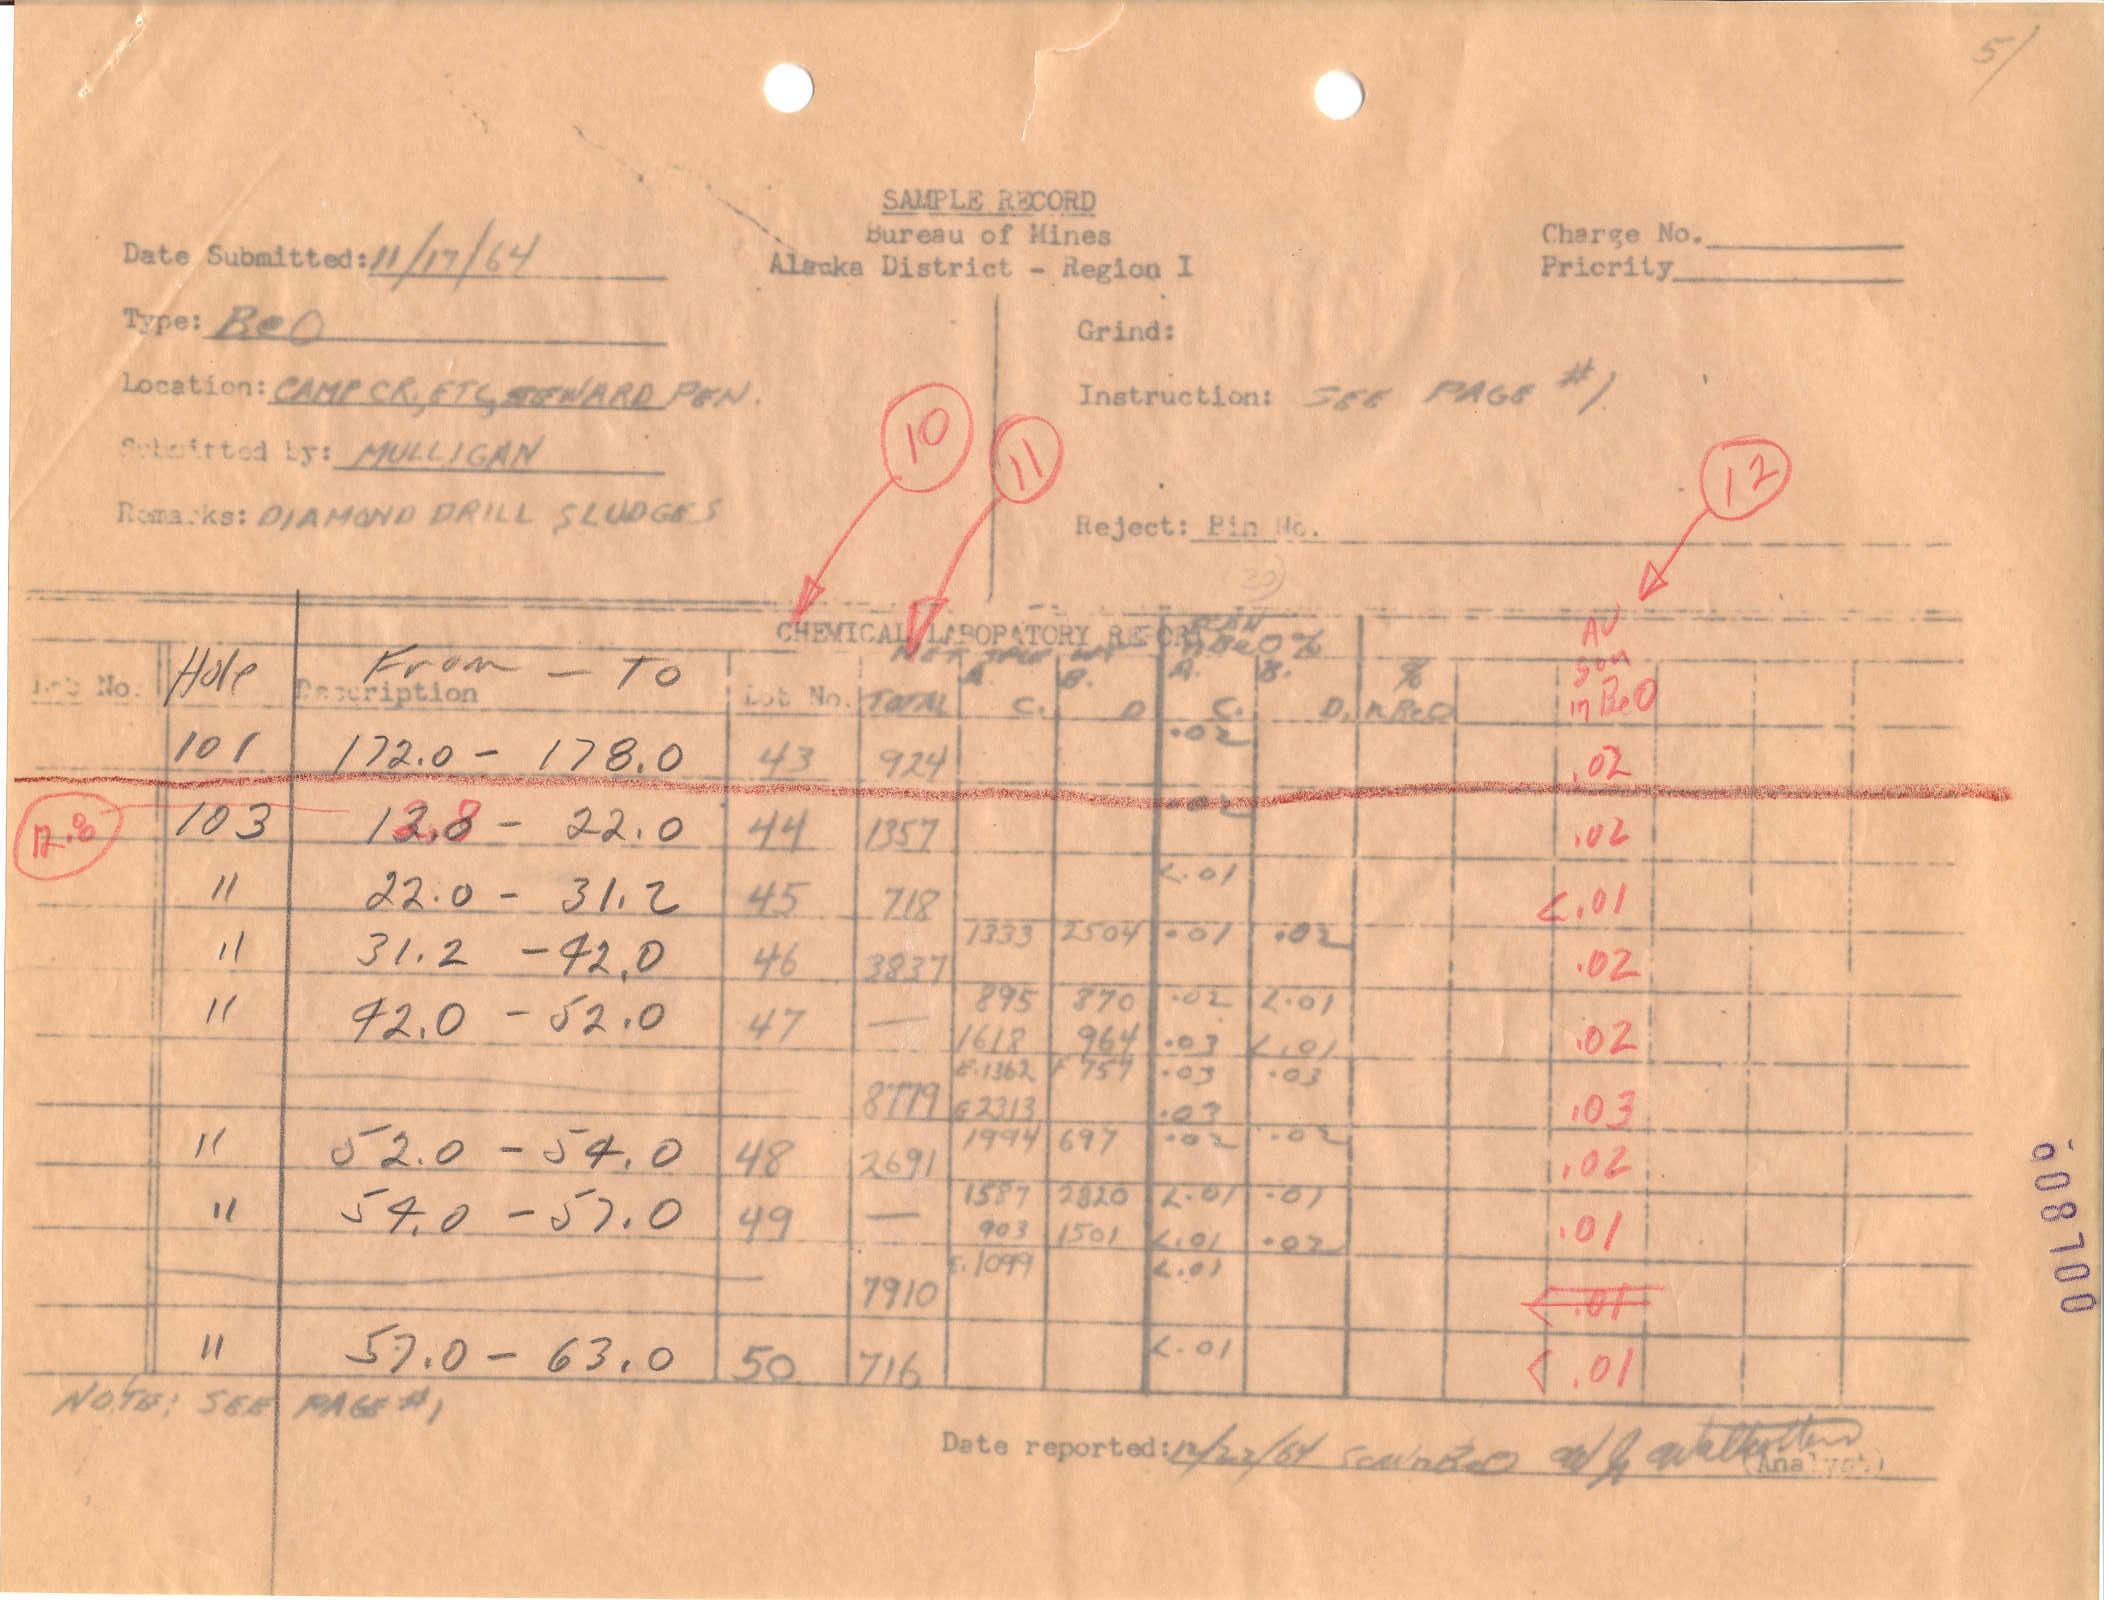 51
SAMPLE RECORD
Bureau of Mines
Alaska District - Region I
Date Submitted: 11/17/64
Charge No.
Priority
Type: BeO
Grind:
Location: CAMP CR, ETC, SEWARD PEN.
Instruction: SEE PAGE #1
10
11
12
Submitted by: MULLIGAN
Remarks: DIAMOND DRILL SLUDGES
Reject: Bin No.
CHEMICAL LABORATORY REPORT
Lab No. Hole From - To Description Lot No. TOTAL A. C. B. D BeO% A. C. B. D. % n BeO AV n BeO
101 172.0 - 178.0 43 924 .02 .02
12.8 103 12.8 - 22.0 44 1357 .02 .02
" 22.0 - 31.2 45 718 <.01 <.01
" 31.2 - 42.0 46 3837 1333 2504 .01 .02 .02
" 42.0 - 52.0 47 — 895 870 .02 <.01
1618 964 .03 <.01 .02
E.1362 F 757 .03 .03
8779 G 2313 .03 .03
" 52.0 - 54.0 48 2691 1994 697 .02 .02 .02
" 54.0 - 57.0 49 — 1587 2820 <.01 .01
903 1501 <.01 .02 .01
E.1099 <.01
7910 <.01
" 57.0 - 63.0 50 716 <.01 <.01
NOTE: SEE PAGE #1
Date reported: 12/22/64
(Analyst)
008700